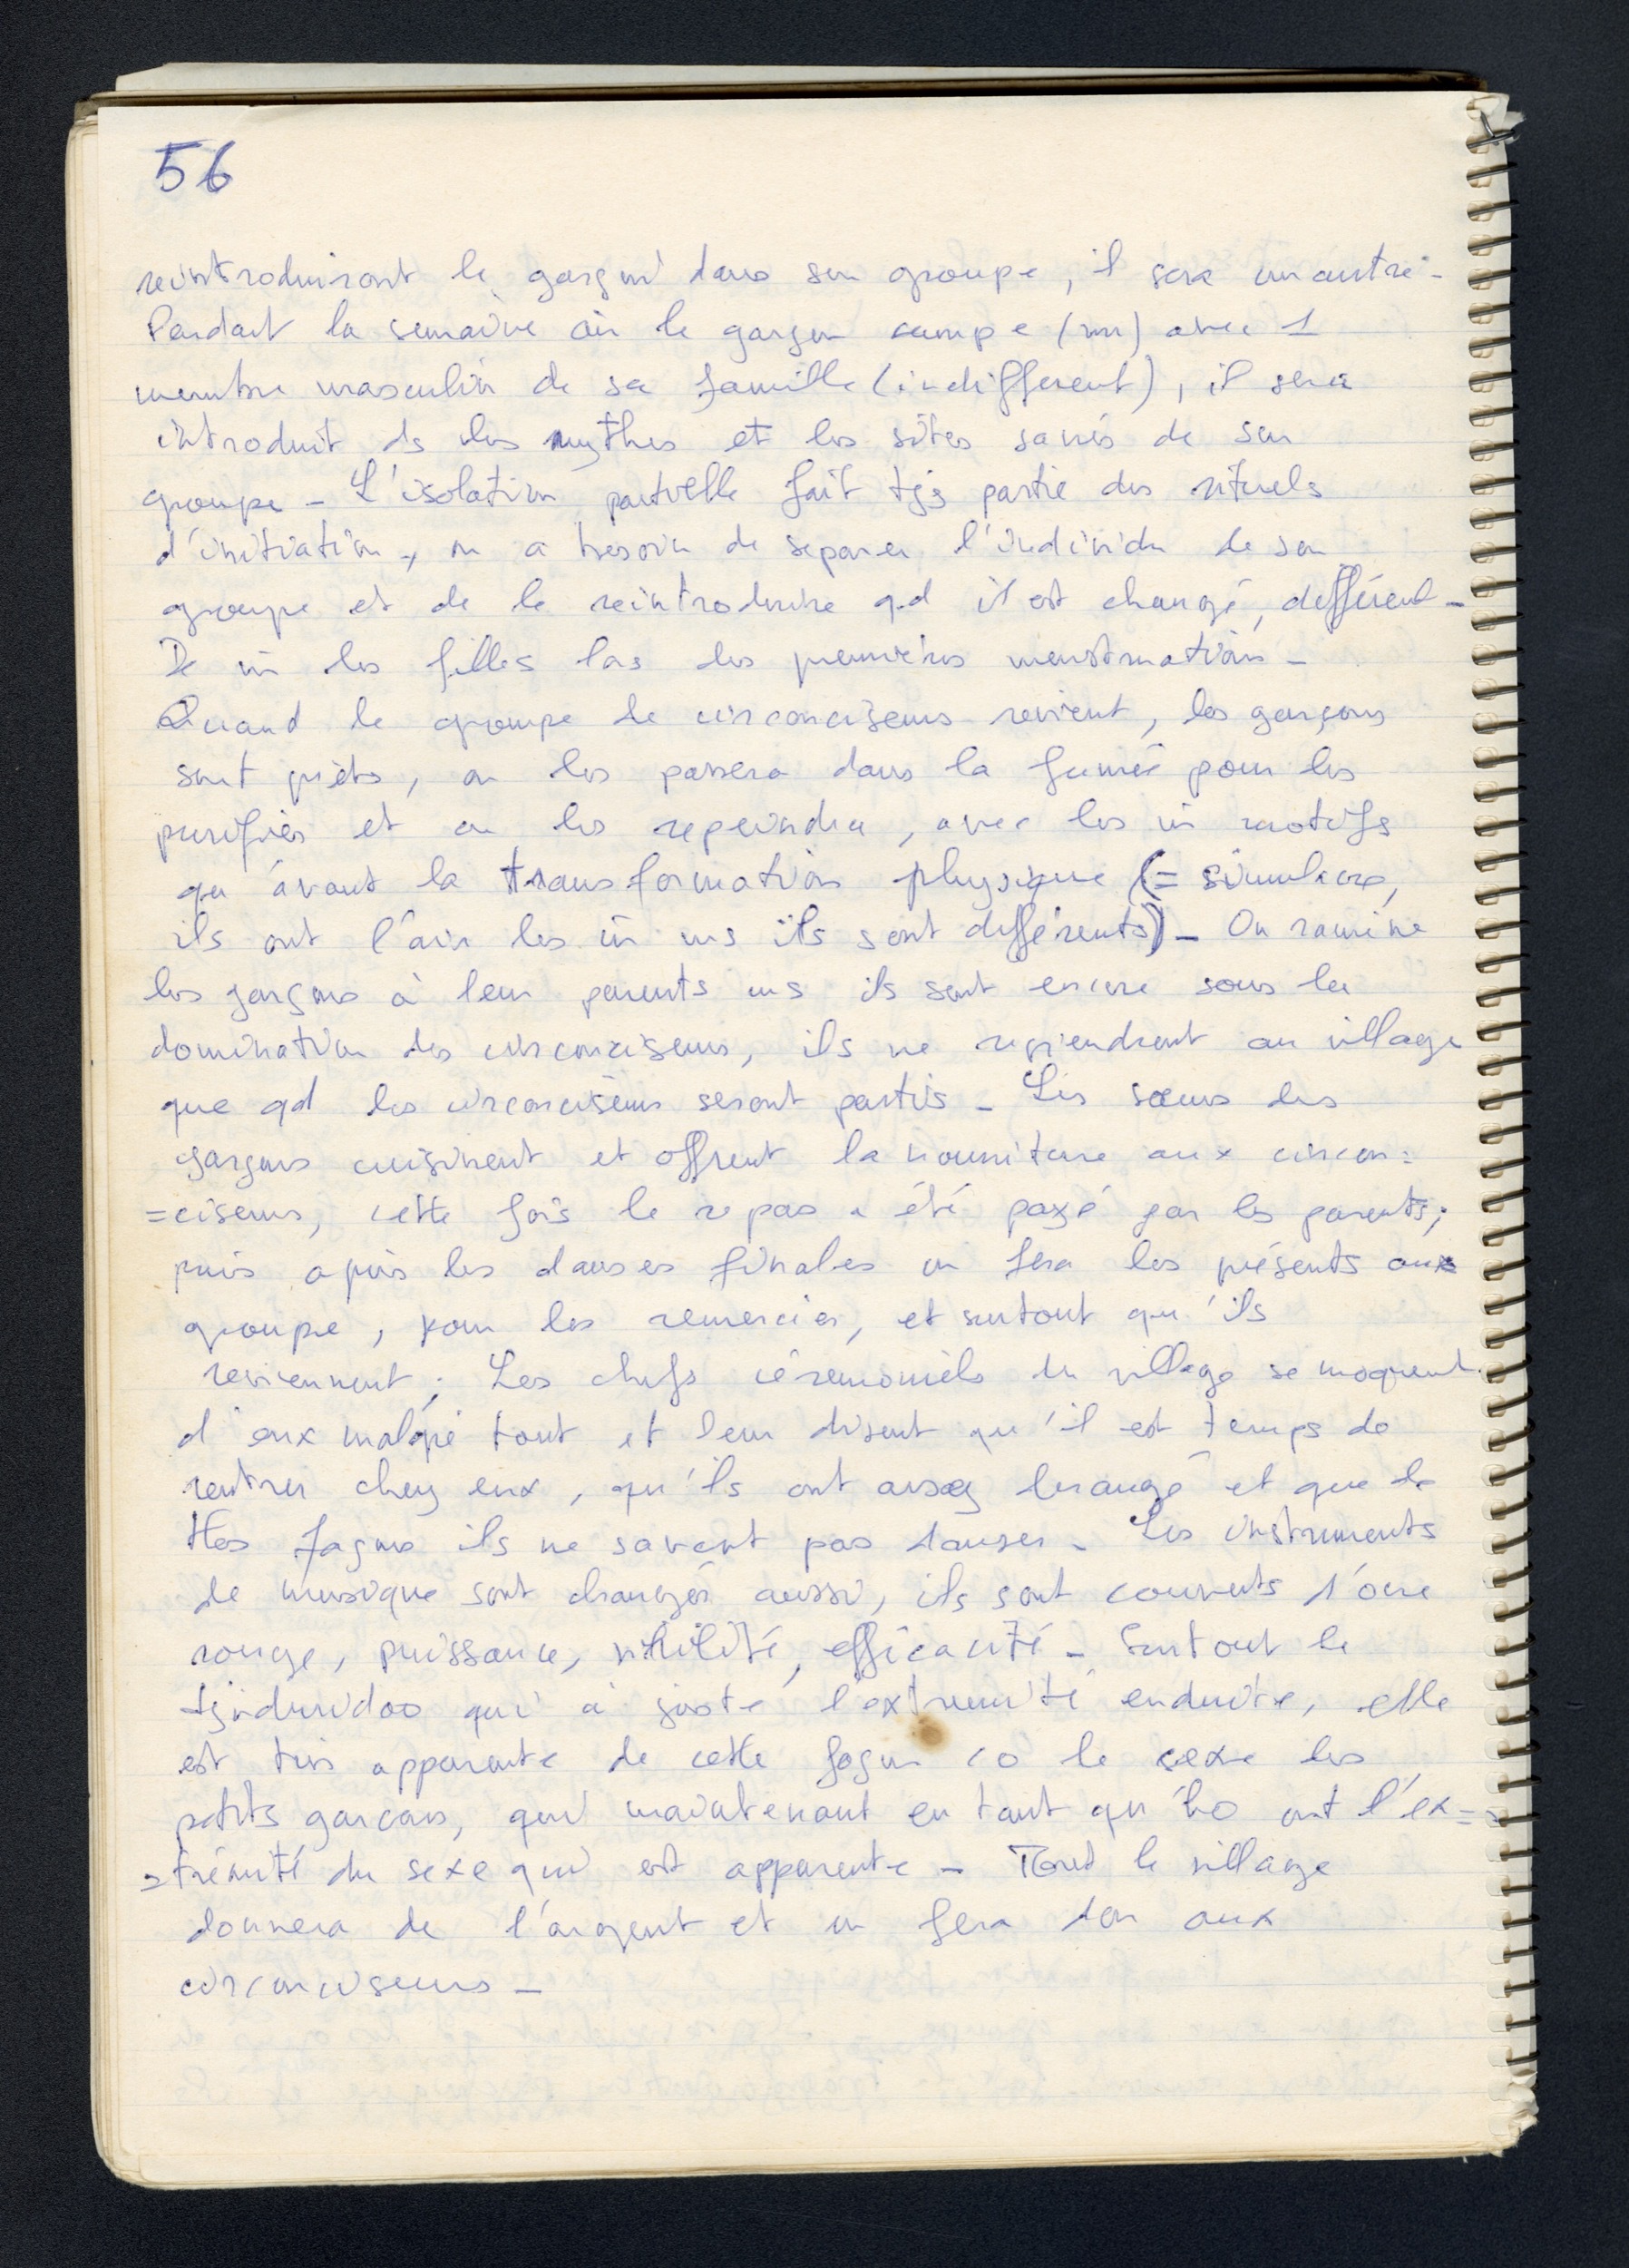 56
reintroduiront le garçon dans son groupe, il sera un autre -
Pendant la semaine où le garçon campe (nn) avec 1
membre masculin de sa famille (indifferent), il sera
introduit ds les mythes et les sites sacrés de son
groupe - L'isolation partielle fait tjs partie des rituels
d'initiation, on a besoin de separer l'individu de son
groupe et de le reintroduire qd il est changé, différent -
De m̄ les filles lors des premières menstruations -
Quand le groupe de circonciseurs revient, les garçons
sont prêts, on les passera dans la fumée pour les
purifier et on les repeindra, avec les m̄ motifs
qu'avant la transformation physique (= simulacre,
ils ont l'air les m̄ ms ils sont différents) - On ramène
les garçons à leur parents ms ils sont encore sous la
domination des circonciseurs, ils ne reviendront au village
que qd les circonciseurs seront partis - Les sœurs des
garçons cuisinent et offrent la nourriture aux circon=
=ciseurs, cette fois le repas a été payé par les parents;
puis après les danses finales on fera les présents aux
groupe, pour les remercier, et surtout qu'ils
reviennent; Les chefs cérémoniels du village se moquent
d'eux malgré tout et leur disent qu'il est temps de
rentrer chez eux, qu'ils ont assez derangé et que de
ttes façons ils ne savent pas danser - Les instruments
de musique sont changés aussi, ils sont couverts d'ocre
rouge, puissance, virilité, efficacité - Surtout le
djidjuridoo qui a juste l'extremité enduite, elle
est très apparente de cette façon co le sexe des
petits garcons, qui maintenant en tant qu'ho ont l'ex=
=trémité du sexe qui est apparente - Tout le village
donnera de l'argent et on fera don aux
circonciseurs -